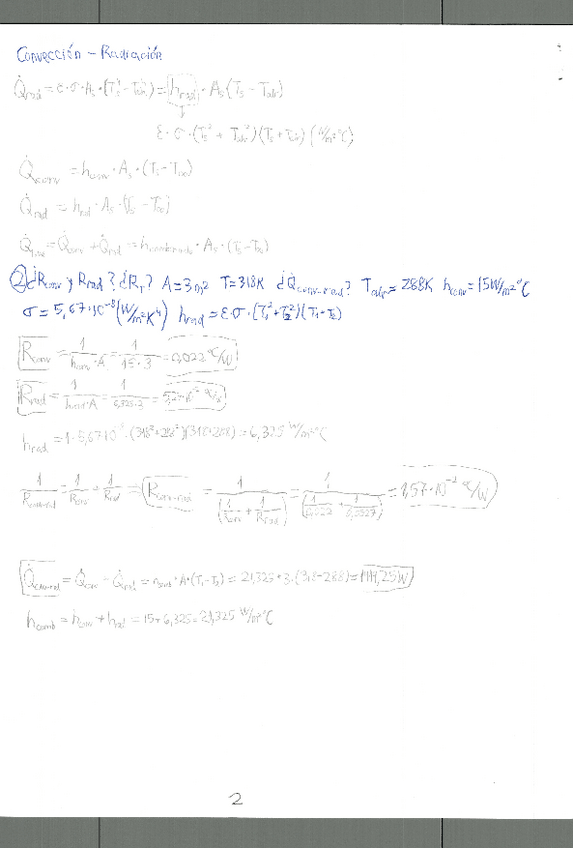 Convección - Radiación
Q̇rad = ε·σ·As·(Ts⁴ - Talr⁴) = [hrad]·As(Ts - Talr)
ε·σ·(Ts² + Talr²)(Ts + Talr) (W/m²ºC)
Q̇conv = hconv·As·(Ts - T∞)
Q̇rad = hrad·As·(Ts - T∞)
= Q̇conv + Q̇rad = hcombinado·As·(Ts - T∞)
② ¿Rconv y Rrad? ¿RT? A = 3m² T = 318K ¿Q̇conv-rad? Talr = 288K hconv = 15W/m²ºC
σ = 5,67·10⁻⁸(W/m²K⁴) hrad = ε·σ·(T₁²+T₂²)(T₁+T₂)
Rconv = 1/(hconv·A) = 1/(15·3) = 0,022 ºC/W
Rrad = 1/(hrad·A) = 1/(6,325·3) = 5,27·10⁻² ºC/W
hrad = 1·5,67·10⁻⁸·(318²+288²)(318+288) = 6,325 W/m²ºC
1/Rconv-rad = 1/Rconv + 1/Rrad ⇒ Rconv-rad = 1/(1/Rconv + 1/Rrad) = 1/(1/0,022 + 1/0,0527) = 1,57·10⁻² ºC/W
Q̇conv-rad = Q̇conv - Q̇rad = hcomb·A·(T₁-T₂) = 21,325·3·(318-288) = 1919,25W
hcomb = hconv + hrad = 15+6,325 = 21,325 W/m²ºC
2